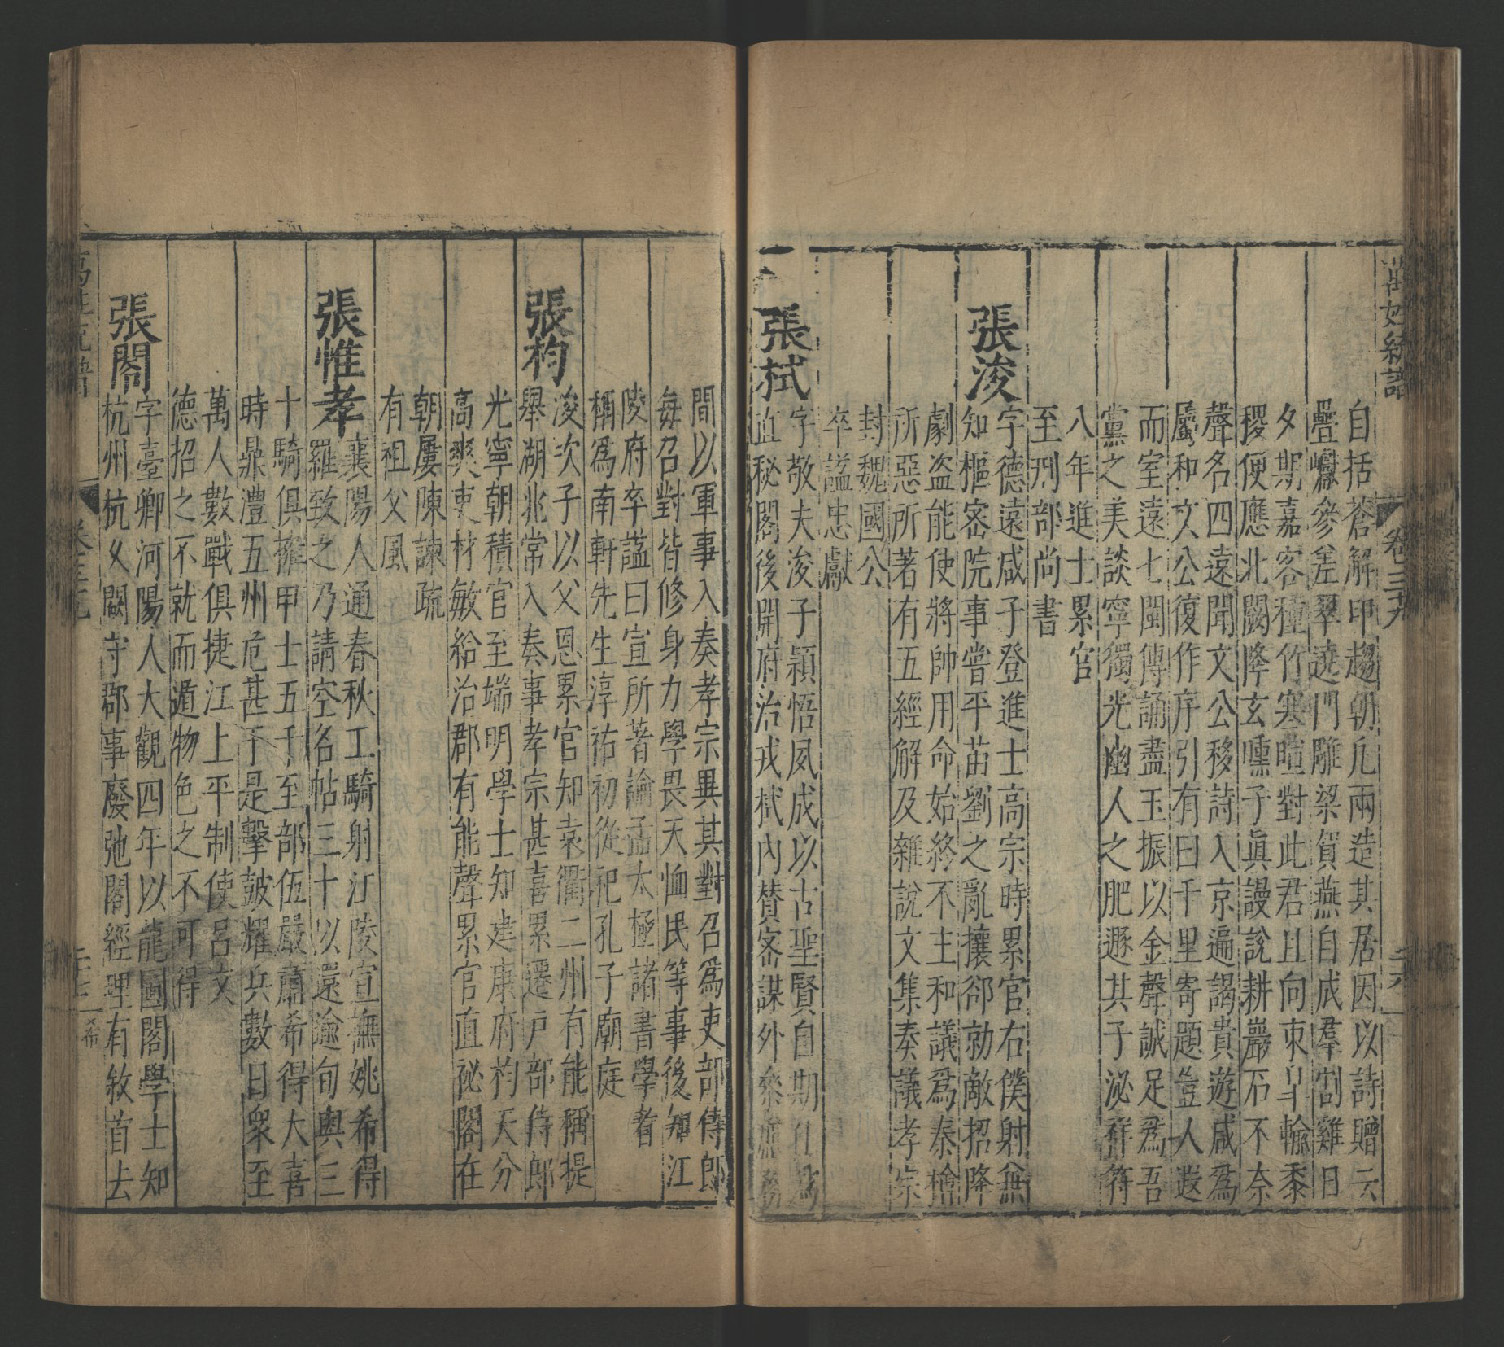 萬姓統譜
卷三十九
自括蒼解印趨朝厄兩造其居因以詩贈云
疊巘參差翠遶門雕梁賀燕自成羣割雞日
夕期嘉客種竹寒暄對此君且向東皐輸黍
稷便應北闕降玄纁子眞謾說耕巖石不奈
聲名四遠聞文公移詩入京遍謁貴遊咸爲
屬和文公復作序引有曰千里寄題豈人遐
而室遠七閩傳誦盡玉振以金聲誠足爲吾
黨之美談寧獨光幽人之肥遯其子泌祥符
八年進士累官
至刑部尚書
張浚
字德遠咸子登進士高宗時累官右僕射無
知樞密院事嘗平苗劉之亂攘郤勍敵招降
劇盜能使將帥用命始終不主和議爲秦檜
所惡所著有五經解及雜說文集奏議孝宗
封魏國公
卒諡忠獻
張栻
字敬夫浚子穎悟夙成以古聖賢自期仕爲
直秘閣後開府治戎栻內贊密謀外參庶務
間以軍事入奏孝宗異其對召爲吏部侍郎
每召對皆修身力學畏天恤民等事後知江
陵府卒諡曰宣所著論孟太極諸書學者
稱爲南軒先生淳祐初從祀孔子廟庭
張枃
浚次子以父恩累官知袁衢二州有能稱提
舉湖北常入奏事孝宗甚喜累遷戶部侍郎
光寧朝積官至端明學士知建康府枃天分
高爽吏材敏給治郡有能聲累官直祕閣在
朝屢陳諫疏
有祖父風
張惟孝
襄陽人通春秋工騎射江陵宣撫姚希得
羅致之乃請空名帖三十以還逾旬與三
十騎俱擁甲士五千至部伍嚴肅希得大喜
時鼎澧五州危甚于是擊鼓耀兵數日衆至
萬人數戰俱捷江上平制使呂文
德招之不就而遁物色之不可得
張閣
字臺卿河陽人大觀四年以龍圖閣學士知
杭州杭久闕守郡事廢弛閣經理有敘首去